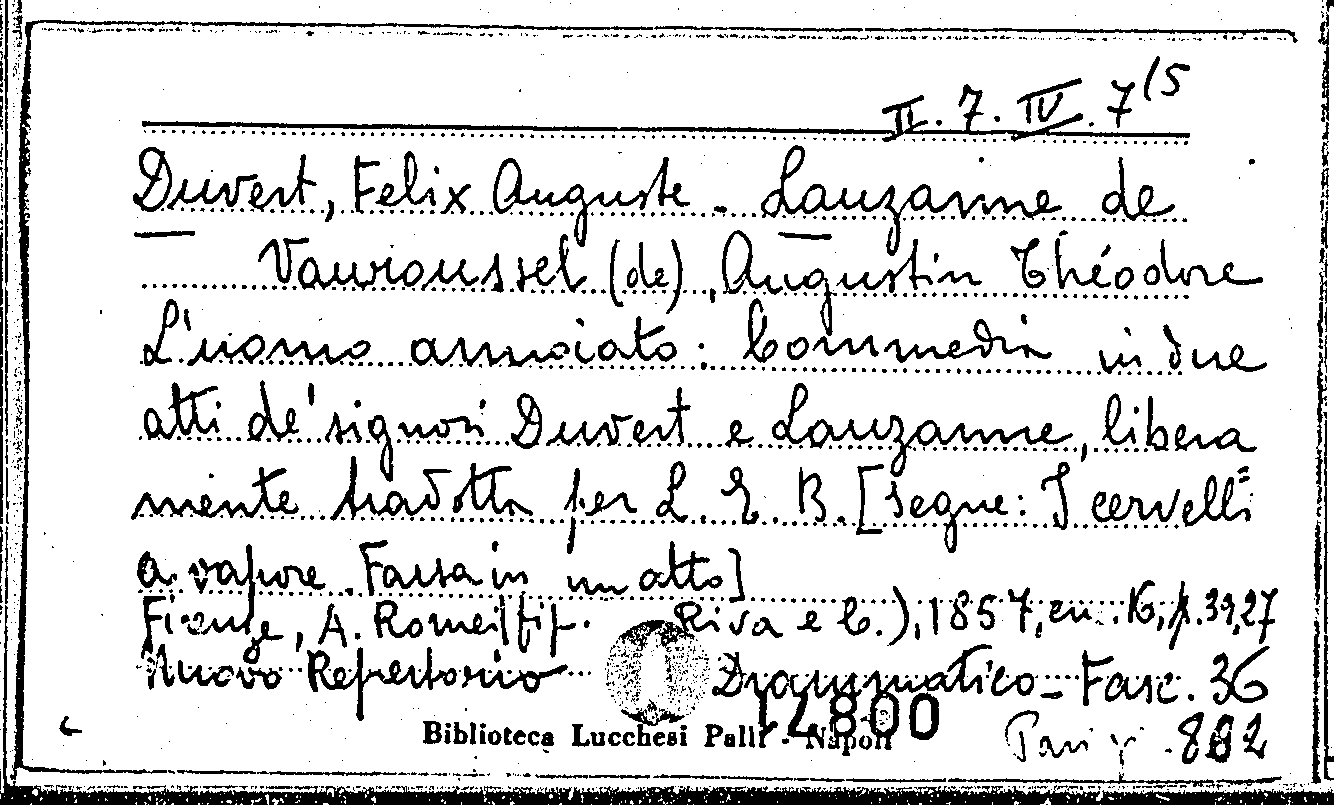 II. 7. IV. 7 (5
Duvert, Felix Auguste - Lauzanne de
Vauroussel (de), Augustin Théodore
L'uomo annoiato: Commedia in due
atti de' signori Duvert e Lauzanne, libera
mente tradotta per L. E. B. [Segue: I cervelli
a vapore. Farsa in un atto]
Firenze, A. Romei (tip. Riva e C.), 1857, cm. 16, p. 39,27
Nuovo Repertorio Drammatico - Fasc. 36
14800
Biblioteca Lucchesi Palli - Napoli